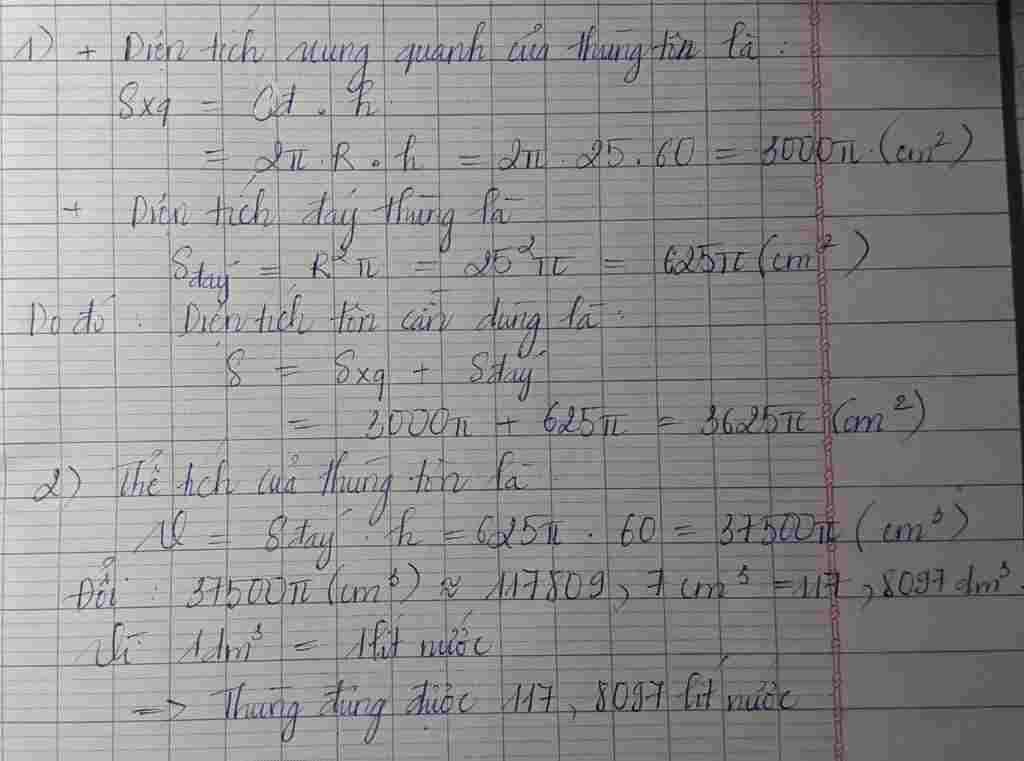 1) + Diện tích xung quanh của thùng tôn là :
Sxq = Cđ . h
= 2π . R . h = 2π . 25 . 60 = 3000π (cm²)
+ Diện tích đáy thùng là
Sđáy = R²π = 25²π = 625π (cm²)
Do đó : Diện tích tôn cần dùng là :
S = Sxq + Sđáy
= 3000π + 625π = 3625π (cm²)
2) Thể tích của thùng tôn là
V = Sđáy . h = 625π . 60 = 37500π (cm³)
Đổi : 37500π (cm³) ≈ 117809,7 cm³ = 117,8097 dm³
Vì 1dm³ = 1lít nước
=> Thùng đựng được 117,8097 lít nước